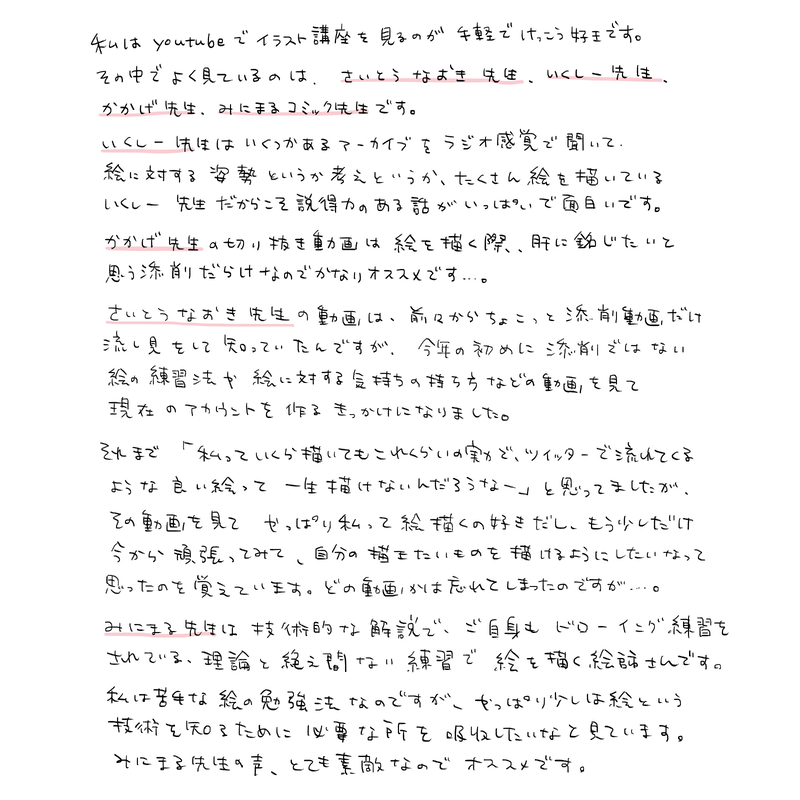 私は youtube で イラスト講座を見るのが 手軽で けっこう好きです。
その中で よく見ているのは、さいとう なおき 先生、いくしー先生、
かかげ先生、みにまるコミック先生です。
いくしー 先生は いくつかある アーカイブを ラジオ感覚で聞いて、
絵に対する 姿勢 というか 考え というか、たくさん 絵を描いている
いくしー 先生だからこそ 説得力のある 話が いっぱいで面白いです。
かかげ先生の切り抜き動画は 絵を描く際、肝に銘じたいと
思う添削だらけなのでかなりオススメです…。
さいとう なおき 先生の動画は、前々からちょこっと 添削動画だけ
流し見をして 知っていたんですが、今年の初めに 添削ではない
絵の練習法や 絵に対する気持ちの持ち方などの動画を見て
現在のアカウントを作る きっかけになりました。
それまで「私っていくら描いてもこれくらいの実力で、ツイッターで流れてくる
ような良い絵って 一生描けないんだろうなー」と思ってましたが、
その動画を見て やっぱり私って絵描くの好きだし、もう少しだけ
今から 頑張ってみて、自分の描きたいものを描けるようにしたいなって
思ったのを覚えています。どの動画かは忘れてしまったのですが…。
みにまる先生は 技術的な解説で、ご自身も ドローイング練習を
されている、理論と絶え間ない練習で 絵を描く絵師さんです。
私は苦手な絵の勉強法なのですが、やっぱり少しは絵という
技術を知るために 必要な所を 吸収したいなと見ています。
みにまる先生の声、とても素敵なので オススメです。